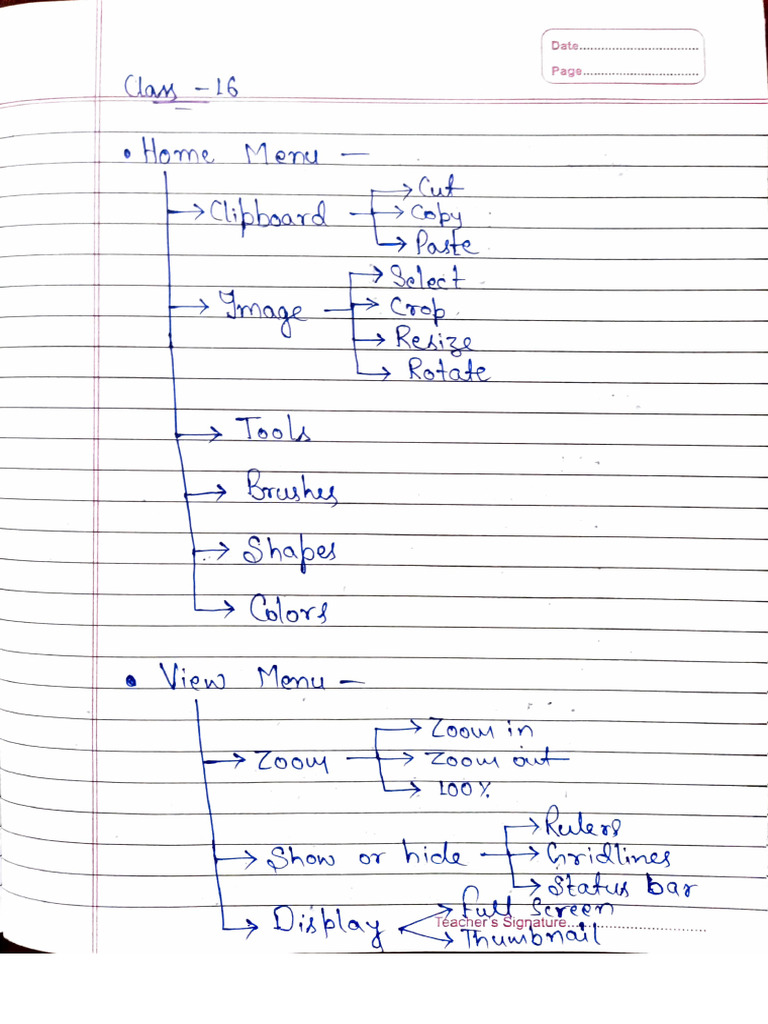 Date
Page
Class - 16
• Home Menu —
→ Cut
→ Clipboard → Copy
→ Paste
→ Select
→ Image → Crop
→ Resize
→ Rotate
→ Tools
→ Brushes
→ Shapes
→ Colors
• View Menu —
→ Zoom in
→ Zoom → Zoom out
→ 100%
→ Rulers
→ Show or hide → Gridlines
→ Status bar
→ Display → Full Screen
Teacher's Signature
→ Thumbnail